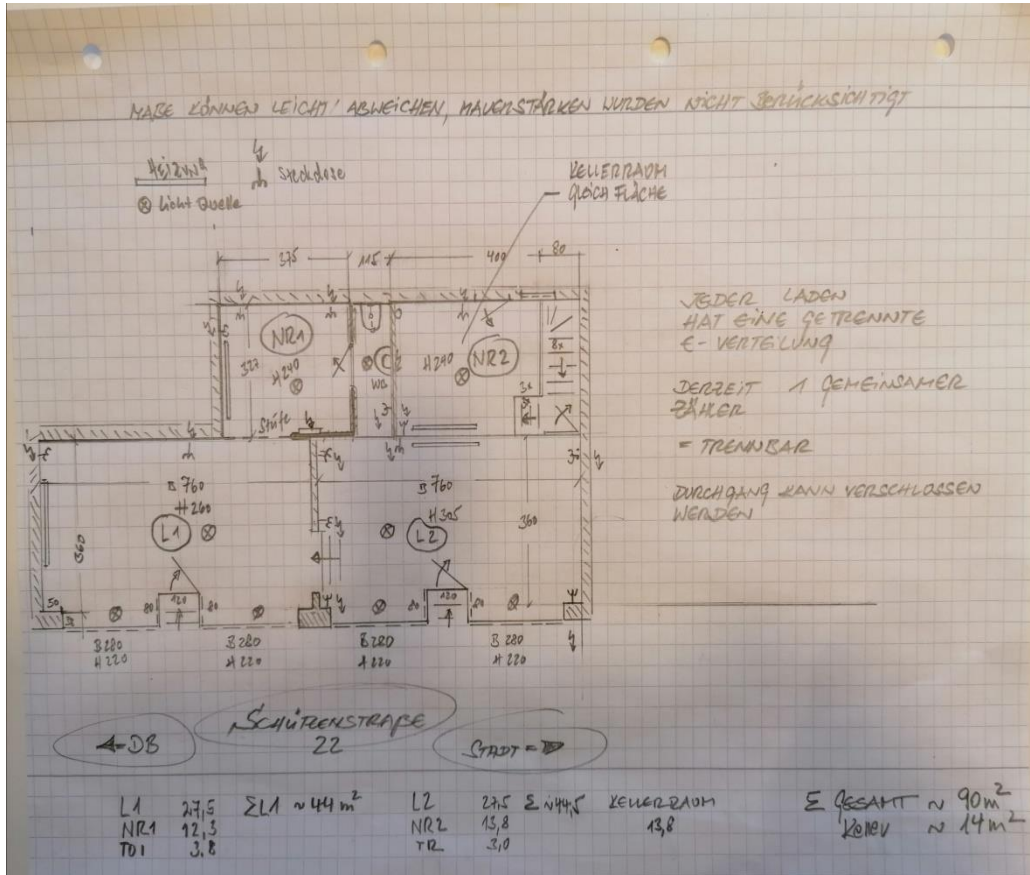 MAßE KÖNNEN LEICHT ABWEICHEN, MAUERSTÄRKEN WURDEN NICHT BERÜCKSICHTIGT
HEIZUNG
Steckdose
Licht Quelle
KELLERRAUM
GLEICH FLÄCHE
375
115
400
80
NR1
H240
327
Stufe
WC
H240
NR2
8x
3x
JEDER LADEN
HAT EINE GETRENNTE
E-VERTEILUNG
DERZEIT 1 GEMEINSAMER
ZÄHLER
= TRENNBAR
DURCHGANG KANN VERSCHLOSSEN
WERDEN
B 760
H 260
L1
360
B 760
H 305
L2
360
50
80
120
80
80
120
80
B 280
H 220
B 280
H 220
B 280
H 220
B 280
H 220
DB
SCHÜTZENSTRAßE
22
STADT
L1 27,5 ΣL1 ~44 m²
NR1 12,3
TOI 3,8
L2 27,5 Σ ~44,5
NR2 13,8
TR 3,0
KELLERRAUM
13,8
Σ GESAMT ~ 90m²
Keller ~ 14m²